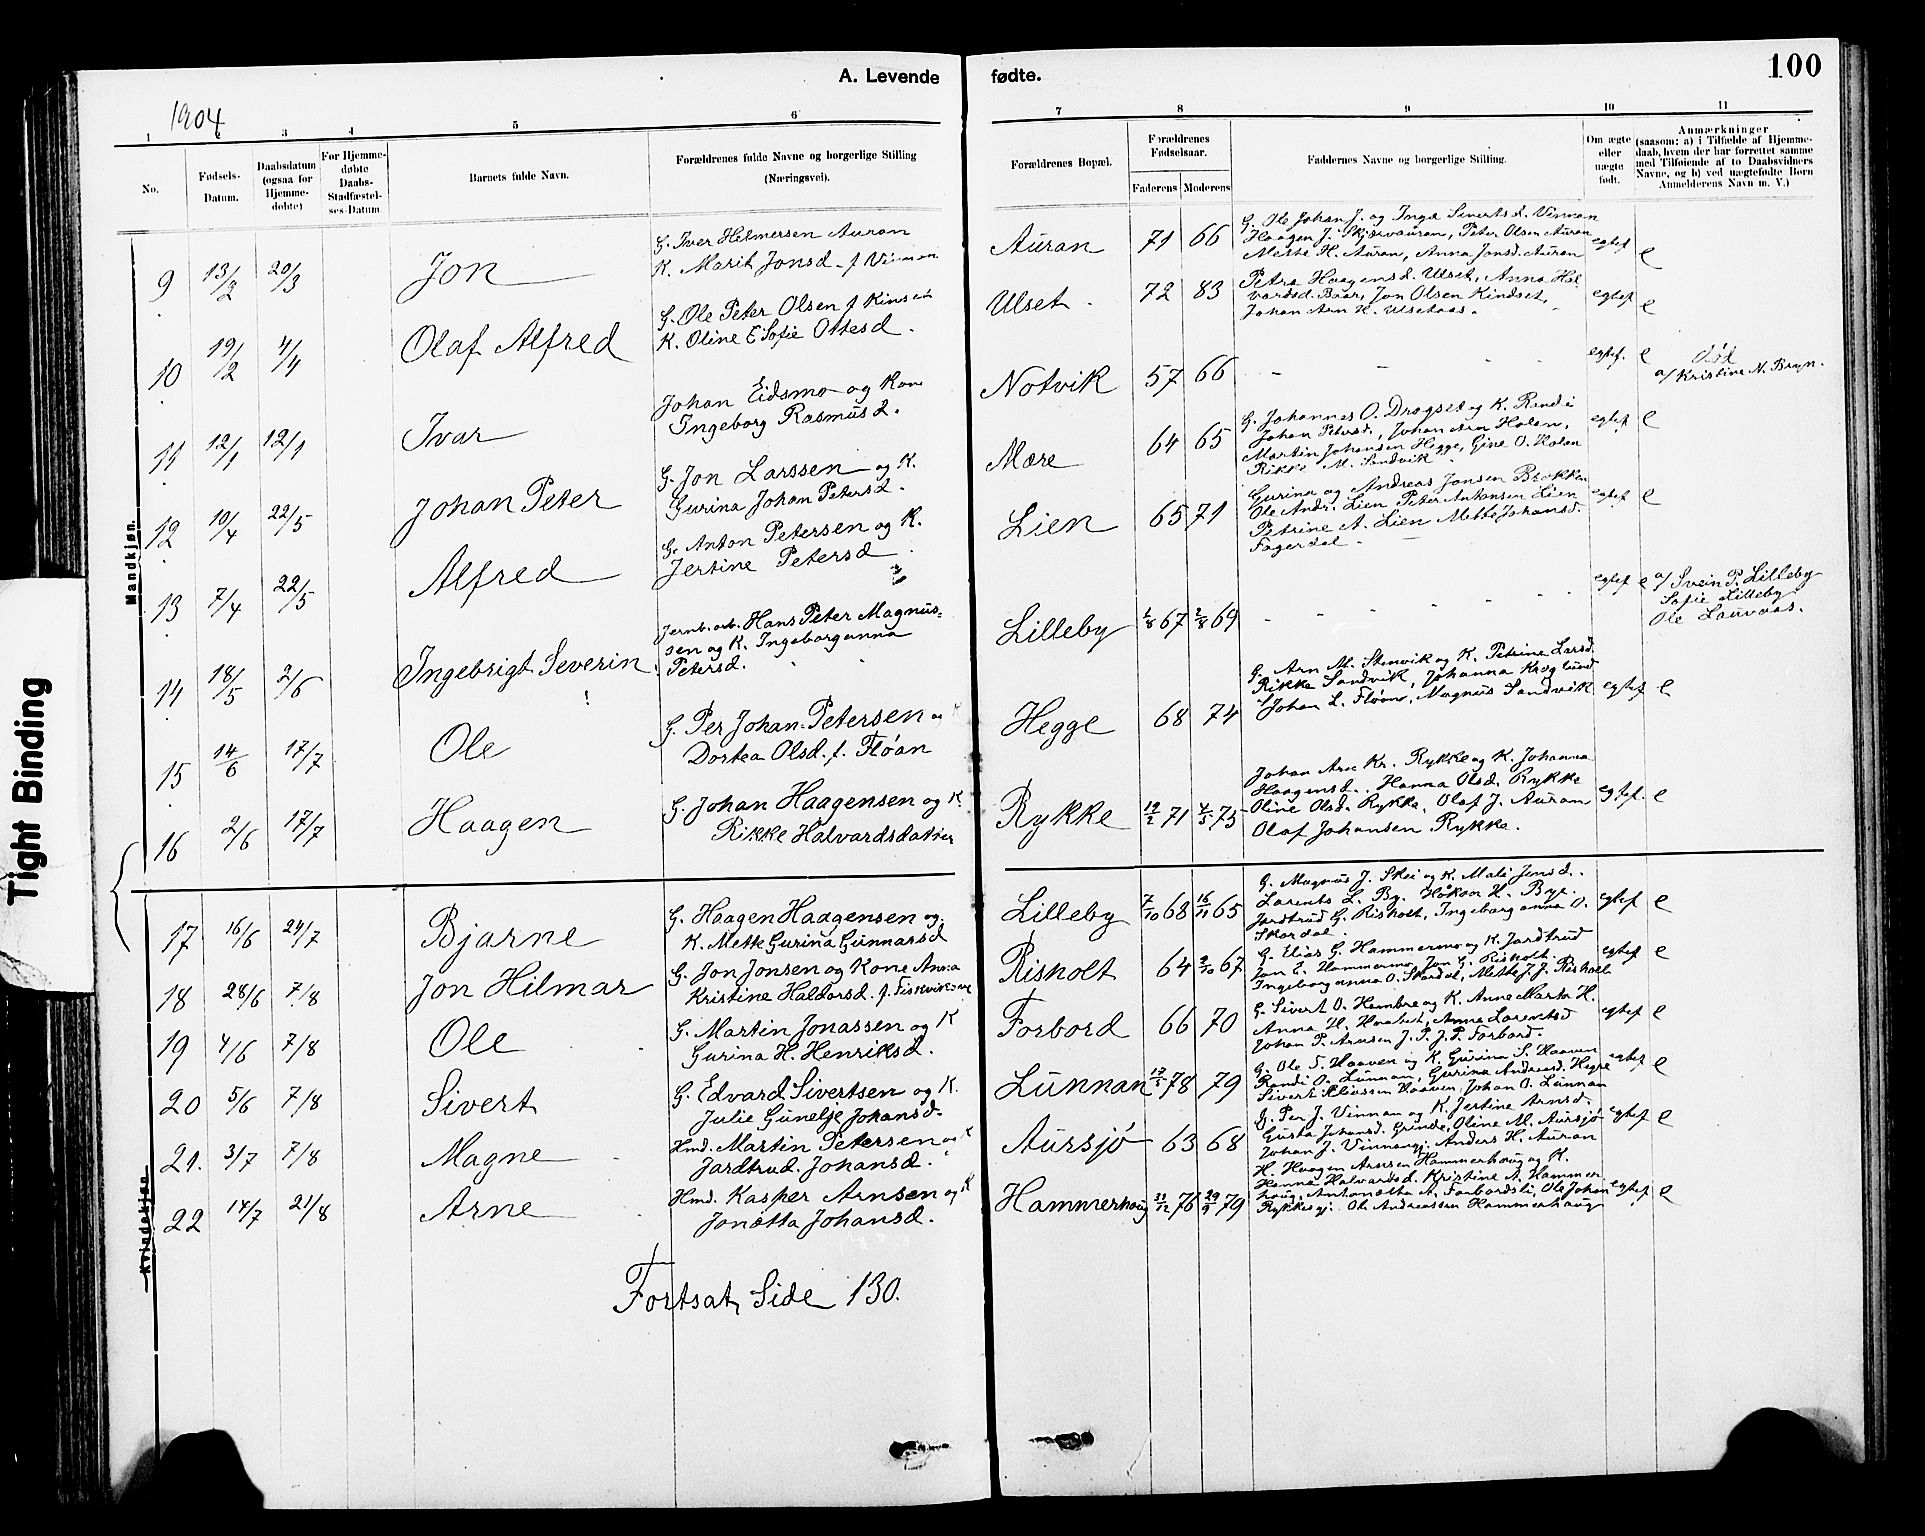 A. Levende fødte.
100
1904
1 2 3 4 5 6 7 8 9 10 11
No.
Fødsels-Datum.
Daabsdatum (ogsaa for Hjemme-døbte)
For Hjemme-døbte Daabs-Stadfæstel-ses-Datum
Barnets fulde Navn.
Forældrenes fulde Navne og borgerlige Stilling (Næringsvei).
Forældrenes Bopæl.
Forældrenes Fødselsaar.
Faderens Moderens
Faddernes Navne og borgerlige Stilling.
Om ægte eller uægte født.
Anmærkninger (saasom: a) i Tilfælde af Hjemme-daab, hvem der har forrettet samme med Tilføiende af to Daabsvidners Navne, og b) ved uægtefødte Børn Anmelderens Navn m. V.)
Mandkjøn.
9 13/2 20/3 Jon
G. Iver Hilmersen Auran
K. Marit Jonsd. f. Vinnan
Auran 71 66
G. Ole Johan J. og Inga Sivertsd. Vinnan
Haagen J. Skjervauran, Peter Olsen Auran
Mette H. Auran, Anna Jonsd. Auran
egtef e
10 19/2 4/4 Olaf Alfred
G. Ole Peter Olsen f.
K. Oline E Sofie Ottesd.
Ulset. 72 83
Petra Haagensd. Ulset, Anna Hal
vardsd. Baar, Jon Olsen Kindset,
Johan Arn K. Ulsetaas.
egtef e
11 12/1 12/1 Ivar
Johan Eidsmo og Kone
Ingeborg Rasmusd.
Notvik 57 66
- - -
egtef. e
død
a/ Kristine N. Bryn.
12 10/4 22/5 Johan Peter
G. Jon Larssen og K.
Gurina Johan Petersd.
Mære 64 65
G. Johannes O. Dragset og K. Randi
Johan Petersd., Johan Arn Holan,
Martin Johansen Hegge, Gine O. Holan
Rikke M. Sandvik
egtef e
13 7/4 22/5 Alfred
G. Anton Petersen og K.
Jertine Petersd.
Lien 65 71
Gurina og Andreas Jonsen Brekken
Ole Andr. Lien Peter Antonsen Lien
Petrine A. Lien Mette Johansd.
Fagerdal -
egtef e
14 18/5 2/6 Ingebrigt Severin
Jernb. arb. Hans Peter Magnus-
sen og K. Ingeborganna
Petersd.
Lilleby 1/8 67 2/8 69
- - -
egtef e
a/ Svein P. Lilleby
Sofie Lilleby
Ole Lauvaas.
15 14/6 17/7 Ole
G. Per Johan Petersen og
Dortea Olsd. f. Fløan
Hegge 68 74
G. Arn M. Stenvik og K. Petrine Larsd.
Rikke Sandvik, Johanna Kroglund
Johan L. Fløan, Magnus Sandvik
egtef e
16 2/6 17/7 Haagen
G. Johan Haagensen og K.
Rikke Halvardsdatter
Rykke 12/2 71 4/5 75
Johan Arn Kr. Rykke og K. Johanna
Haagensd. Hanna Olsd. Rykke
Oline Olsd. Rykke, Olaf J. Auran
Olaf Johansen Rykke.
egtef. e
17 16/6 24/7 Bjarne
G. Haagen Haagensen og
K. Mette Gurina Gunnarsd
Lilleby 7/10 68 16/11 65
G. Magnus J. Skei og K. Mali Jensd.
Lorents L. By. Håkon H. Bye.
Jardtrud G. Risholt, Ingeborganna O.
Skardal.
egtef e
18 28/6 7/8 Jon Hilmar
G. Jon Jonsen og Kone Anna
Kristine Haldorsd. f.
Risholt 64 2/10 67
G. Elias G. Hammermo og K. Jardtrud
Jon E. Hammermo Jon G. Risholt
Ingeborganna O. Skardal, Mette J. J. Risholt
egtef e
19 4/6 7/8 Ole
G. Martin Jonassen og K
Gurina H. Henriksd.
Forbord 66 70
G. Sivert O. Hembre og K. Anne Marta H.
Anna H. Anne Larentsd
Johan P. Arnsen J. P. J. P. Forbord.
egtef e
20 5/6 7/8 Sivert
G. Edvard Sivertsen og K.
Julie Gunelje Johansd.
Lunnan 12/5 78 79
G. Ole S. Haaven og K. Gurina S. Haaven
Randi O. Lunnan, Gurina Andreasd. Hegre
Sivert Haaven Johan O. Lunnan
egtef e
21. 3/7 7/8 Magne
Hmd. Martin Petersen og K
Jardtrud Johansd.
Aursjø 63 68
G. Per J. Vinnan og K. Jertine Arnsd.
Gusta Johansd. Grinde, Oline M. Aursjø
Johan J. Anders H. Auran
egtef e
22 14/7 21/8 Arne
Hmd. Kasper Arnsen og K
Jonetta Johansd.
Hammerhaug 31/12 76 29/9 79
H. Haagen Arnsen Hammerhaug og K.
Hanna Halvardsd. Kristine A. Hammer
haug. Antonetta A. Forbordsli, Ole Johan
Rykkesgj. Ole Andreassen Hammerhaug
egtef e
Kvindekjøn.
Fortsat, Side 130.
Tight Binding